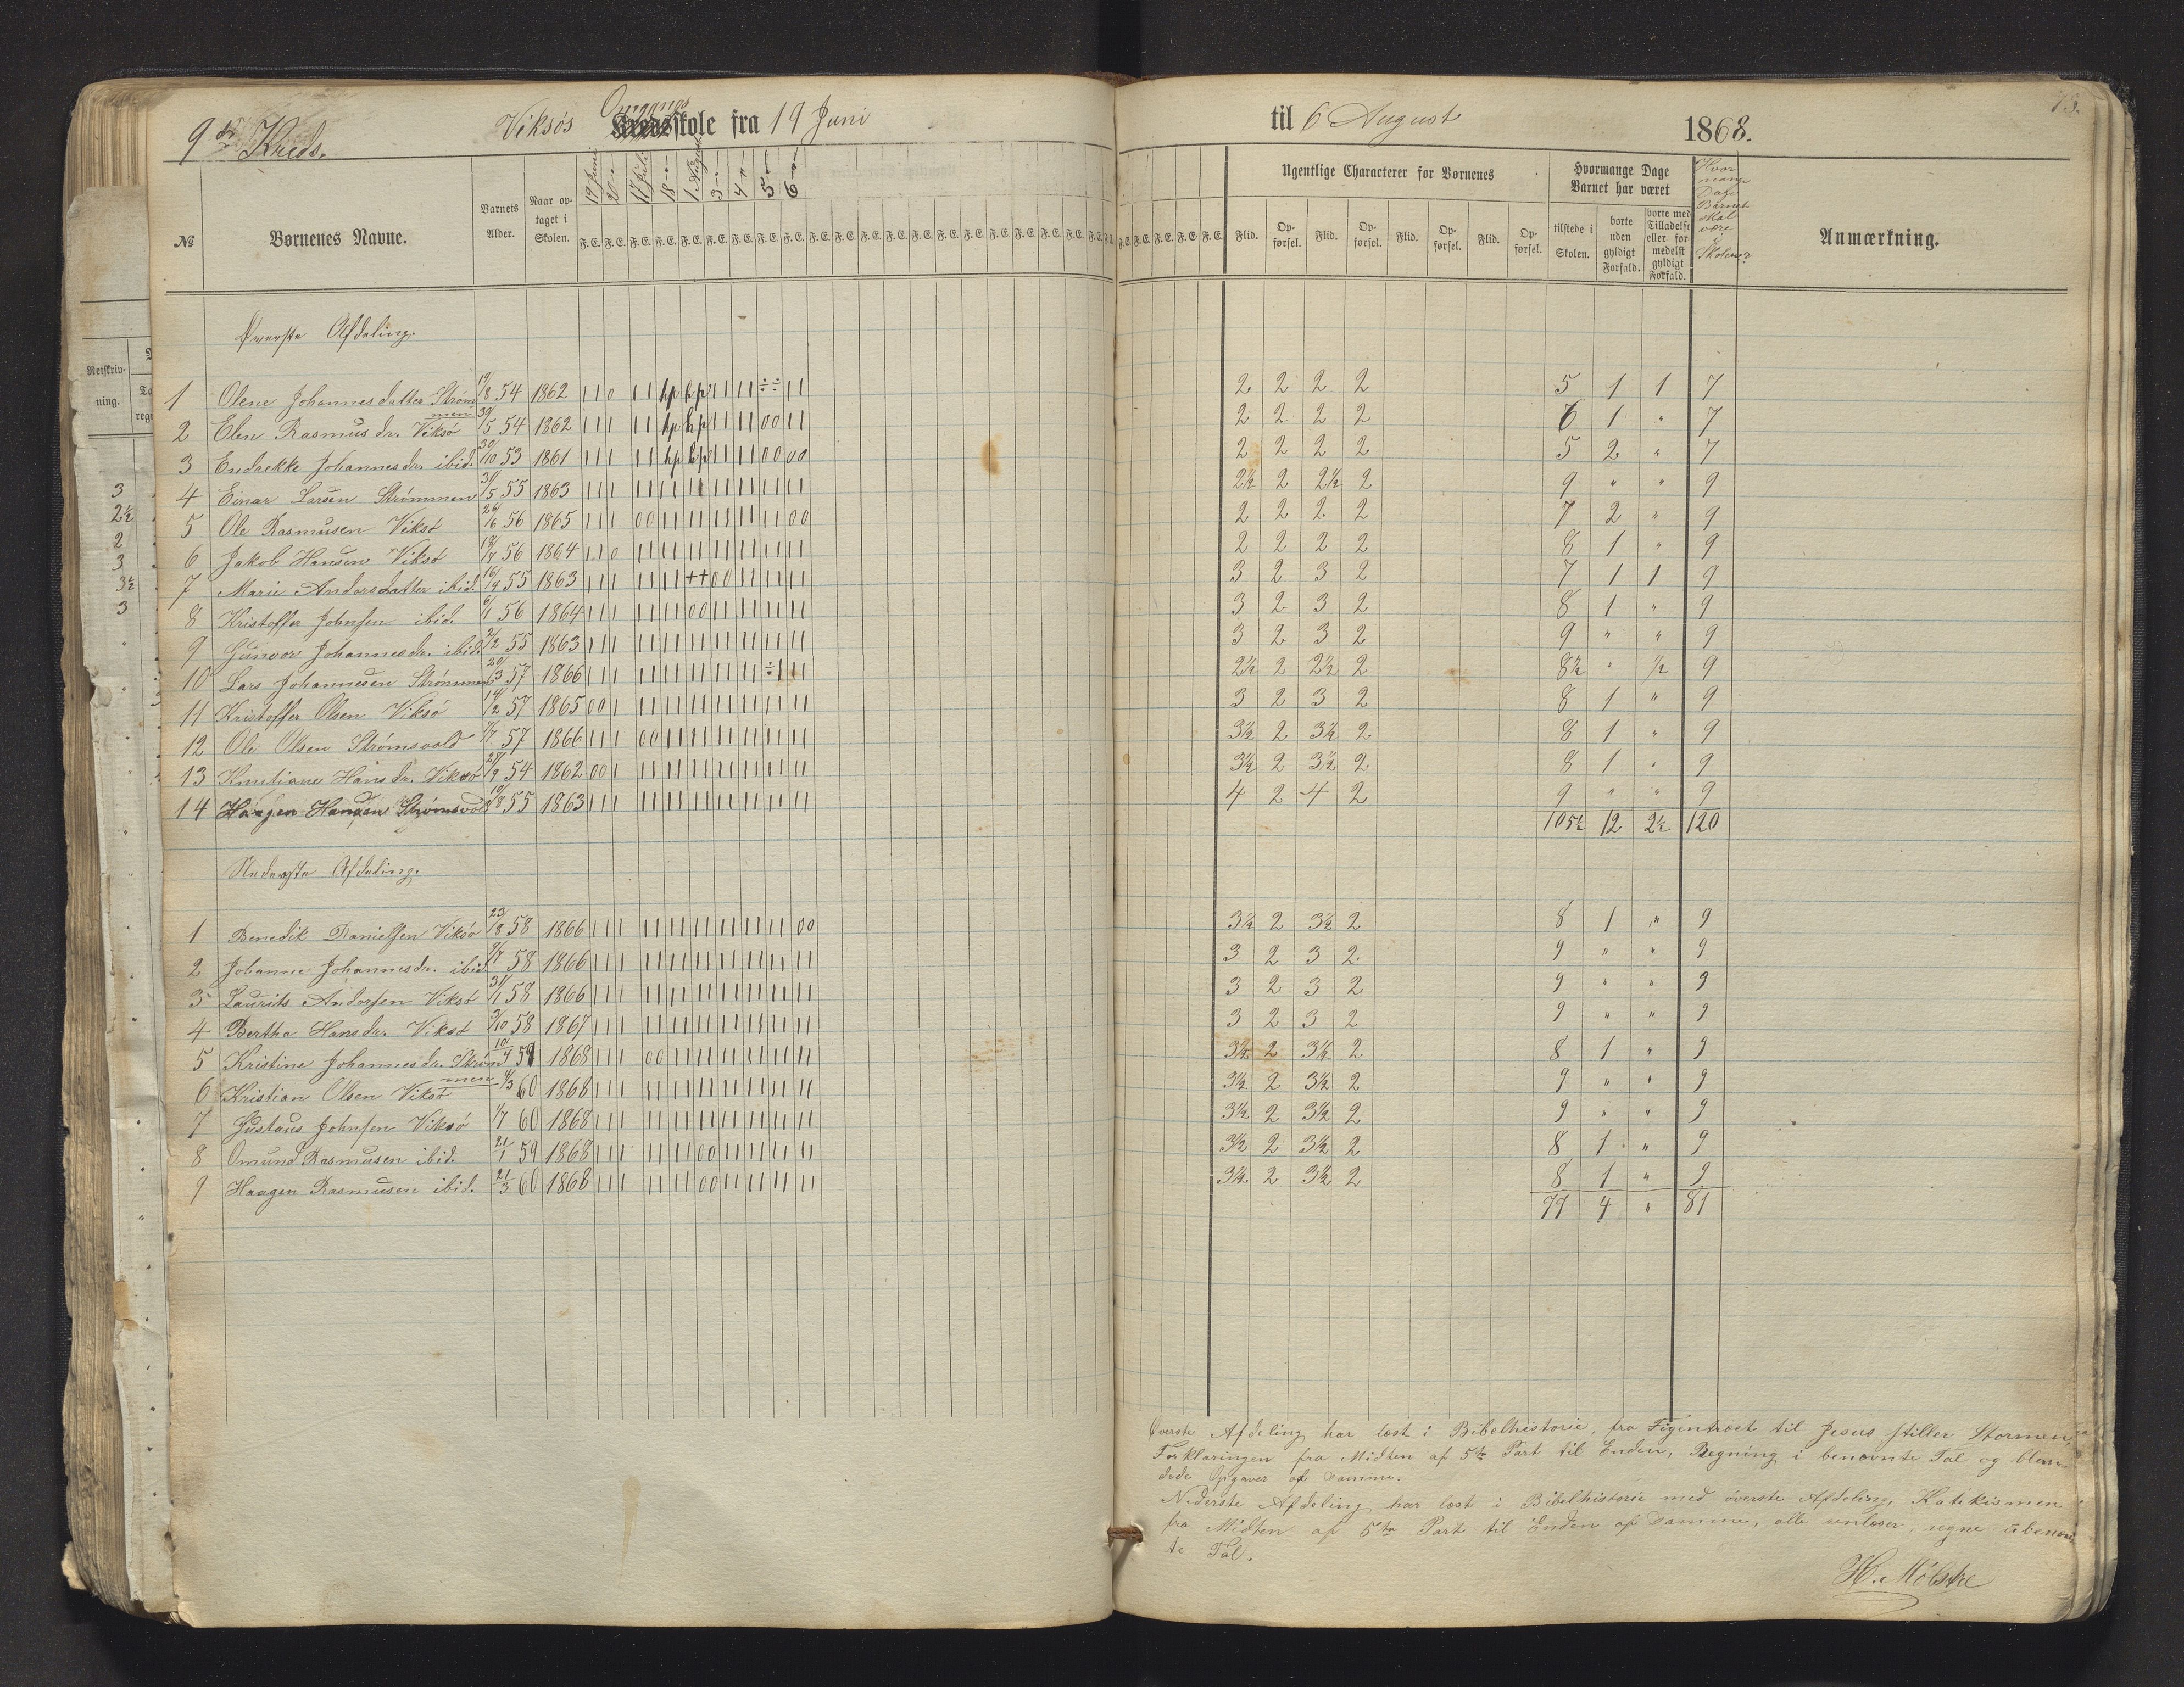 9de Kreds. Viksøs Omgangsskole fra 19 Juni til 6 August 1868. 75.
№ Børnenes Navne. Barnets Alder. Naar optaget i Skolen. 19 Juni 20 " 17 Juli 18 " 1 August 3 " 4 " 5 " 6 "
F. E. F. E. F. E. F. E. F. E. F. E. F. E. F. E. F. E.
Ugentlige Characterer for Børnenes
Flid. Opførsel. Flid. Opførsel. Flid. Opførsel. Flid. Opførsel.
Hvormange Dage Barnet har været
tilstede i Skolen. borte uden gyldigt Forfald. borte med Tilladelse eller formedelst gyldigt Forfald.
Hvor mange Dage Barnet skal være i Skolen?
Anmærkning.
Øverste Afdeling.
1 Olene Johannesdatter Strømmen 19/8 54 1862 2 2 2 2 5 1 1 7
2 Elen Rasmusdr. Viksø 30/5 54 1862 2 2 2 2 6 1 " 7
3 Endrekke Johannesdr. ibid. 30/10 53 1861 2 2 2 2 5 2 " 7
4 Einar Larsen Strømmen 31/5 55 1863 2½ 2 2½ 2 9 " " 9
5 Ole Rasmusen Viksø 26/6 56 1865 2 2 2 2 7 2 " 9
6 Jakob Hansen Viksø 18/7 56 1864 2 2 2 2 8 1 " 9
7 Marie Andersdatter ibid. 16/4 55 1863 3 2 3 2 7 1 1 9
8 Kristoffer Johnsen ibid. 6/1 56 1864 3 2 3 2 8 1 " 9
9 Gunvor Johannesdr. ibid. 2/2 55 1863 3 2 3 2 9 " " 9
10 Lars Johannesen Strømmen 20/3 57 1866 2½ 2 2½ 2 8½ " ½ 9
11 Kristoffer Olsen Viksø 14/2 57 1865 3 2 3 2 8 1 " 9
12 Ole Olsen Strømsvold 7/7 57 1866 3½ 2 3½ 2 8 1 " 9
13 Knutiane Hansdr. Viksø 28/9 54 1862 3½ 2 3½ 2 8 1 " 9
14 Haagen Hansen Strømsvold 19/8 55 1863 4 2 4 2 9 " " 9
105½ 12 2½ 120
Nederste Afdeling.
1 Benedik Danielsen Viksø 23/8 58 1866 3½ 2 3½ 2 8 1 " 9
2 Johanne Johannesdr. ibid. 9/7 58 1866 3 2 3 2 9 " " 9
3 Laurits Andersen Viksø 31/1 58 1866 3 2 3 2 9 " " 9
4 Bertha Hansdr. Viksø 3/10 58 1867 3 2 3 2 9 " " 9
5 Kristine Johannesdr. Strømmen 10/4 59 1868 3½ 2 3½ 2 8 1 " 9
6 Kristian Olsen Viksø 4/3 60 1868 3½ 2 3½ 2 9 " " 9
7 Gustaus Johnsen Viksø 1/7 60 1868 3½ 2 3½ 2 9 " " 9
8 Omund Rasmusen ibid. 21/1 59 1868 3½ 2 3½ 2 8 1 " 9
9 Haagen Rasmusen ibid. 21/3 60 1868 3½ 2 3½ 2 8 1 " 9
77 4 " 81
Øverste Afdeling har læst i Bibelhistorie, fra Figentræet til Jesus stiller Stormen,
Forklaringen fra Midten af 5te Part til Enden, Regning i benævnte Tal og blan-
dede Opgaver af samme.
Nederste Afdeling har læst i Bibelhistorie med øverste Afdeling, Katekismen
fra Midten af 5te Part til Enden af samme, alle , regne ubenævn-
te Tal.
H. Mølstre